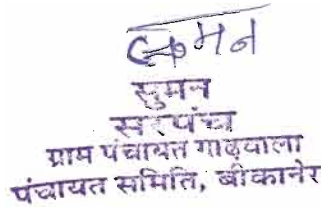 सुमन
सुमन
सरपंच
ग्राम पंचायत गाढ़वाला
पंचायत समिति, बीकानेर